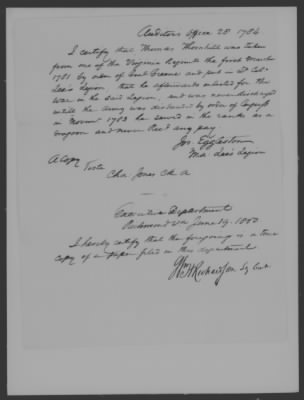 Auditors Office 28 1784
I certify that Thomas Thornhill was taken
from one of the Virginia Regmts the first March
1781 by order of Genl Greene and put in Lt Col.
Lee's Legion that he afterwards enlisted for the
war in the said Legion, and was never discharged
untill the Army was disbanded by order of Congress
in Novemr 1783 he served in the ranks as a
dragoon and never Recd any pay
Jos. Eggleston
Maj. Lee's Legion
A Copy
Teste
Chs Jones Clk A
Executive Department
Richmond Va June 19. 1850
I hereby certify that the foregoing is a true
copy of a paper filed in this department.
Wm H Richardson Sy